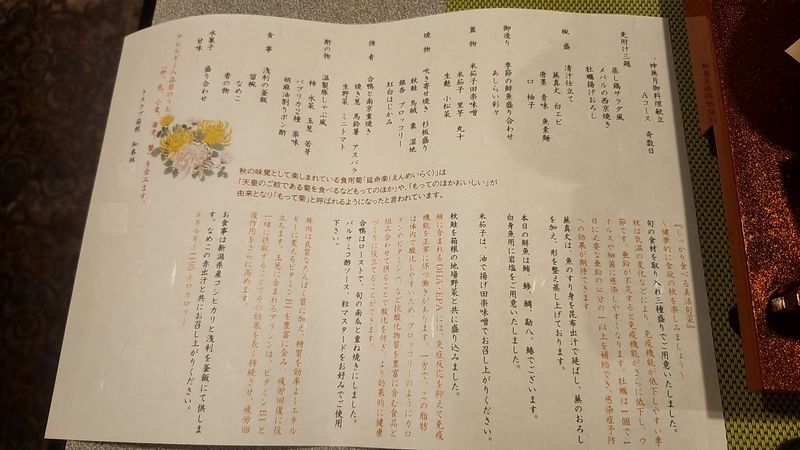 神無月御料理献立
Aコース 奇数日
先附け三題
蒸し鶏サラダ風
メバルの西京焼き
牡蠣揚げおろし
椀盛
清汁仕立て
蕪真丈 白エビ
唐墨 青味 魚素麺
口 柚子
御造り
季節の鮮魚盛り合わせ
あしらい彩々
蓋物
米茄子田楽味噌
米茄子 里芋 丸十
生麩 小松菜
焼物
吹き寄せ焼き 杉板盛り
秋鮭 烏賊 栗 湿地
銀杏 ブロッコリー
紅白はじかみ
強肴
合鴨と南京重焼き
焼き葱 馬鈴薯 アスパラ
生野菜 ミニトマト
酢の物
温製豚しゃぶ風
柿 水菜 玉葱 若芽
パプリカ2種 薬味
胡麻油割りポン酢
食事
浅利の釜飯
留椀 なめこ
香の物
水菓子
甘味 盛り合わせ
アレルギー八品目のうち
(卵、乳、小麦、海老、蟹)を含みます。
トスラブ箱根 和奏林
秋の味覚として楽しまれている食用菊「延命楽(えんめいらく)」は
「天皇のご紋である菊を食べるなどもってのほか」や、「もってのほかおいしい」が
由来となり「もって菊」と呼ばれるようになったと言われています。
『しっかり食べる生活旬菜』
~健康的に食欲の秋を楽しみましょう~
旬の食材を取り入れ三種盛りでご用意いたしました。
秋は気温の変化などにより、免疫機能が低下しやすい季
節です。亜鉛が不足すると免疫機能がさらに低下し、ウ
イルスや細菌に感染しやすくなります。牡蠣は一個で一
日に必要な亜鉛の二分の一以上を補給でき、感染症予防
への効果が期待できます。
蕪真丈は、魚のすり身を昆布出汁で延ばし、蕪のおろし
を加え、形を整え蒸し上げております。
本日の鮮魚は鮪、鰤、鯛、勘八、鰆でございます。
白身魚用に岩塩をご用意いたしました。
米茄子は、油で揚げ田楽味噌でお召し上がりください。
秋鮭を箱根の地場野菜と共に盛り込みました。
鮭に含まれるDHA・EPAには、炎症反応を抑えて免疫
機能を正常に保つ働きがあります。一方で、この脂肪
は体内で酸化しやすいため、ブロッコリーのようにカロ
テンやビタミンCなど抗酸化物質を豊富に含む食品と
組み合わせて摂ることで酸化を防ぎ、より効果的に健康
づくりに役立てることができます。
合鴨はローストで、旬の南瓜と重ね焼きにしました。
バルサミコ酢ソース、粒マスタードをお好みでご使用
下さい。
豚肉は良質なたんぱく質に加え、糖質を効率よくエネル
ギーに変えるビタミンB1を豊富に含み、疲労回復に役
立ちます。玉葱に含まれるアリシンは、ビタミンB1と
一緒に摂取することでその効果を長く持続させ、疲労回
復作用をさらに高めます。
お食事は新潟県産コシヒカリと浅利を釜飯にて供しま
す。なめこの赤出汁と共にお召し上がりください。